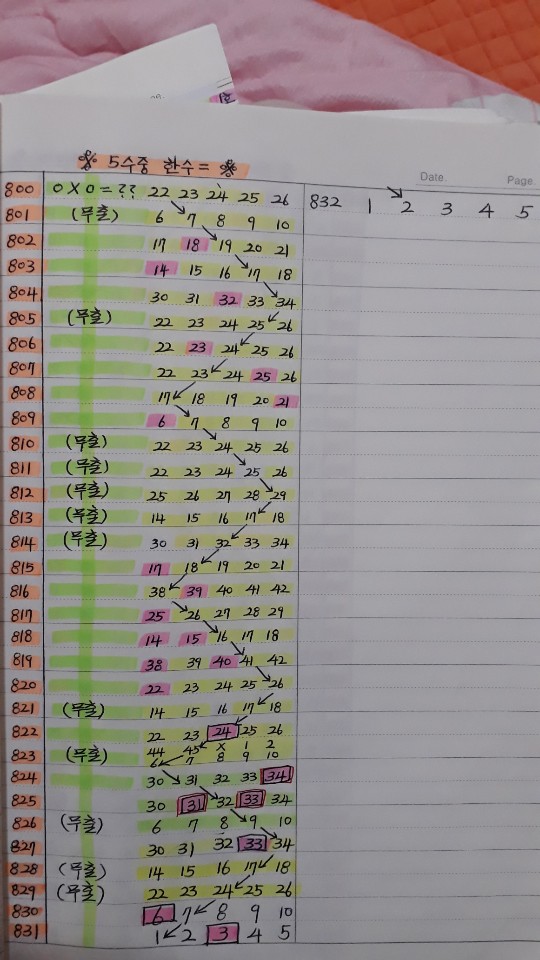 ※ 5수중 한수= ※
Date. Page.
800 0X0=?? 22 23 24 25 26 832 1 2 3 4 5
801 (무출) 6 7 8 9 10
802 17 18 19 20 21
803 14 15 16 17 18
804 30 31 32 33 34
805 (무출) 22 23 24 25 26
806 22 23 24 25 26
807 22 23 24 25 26
808 17 18 19 20 21
809 6 7 8 9 10
810 (무출) 22 23 24 25 26
811 (무출) 22 23 24 25 26
812 (무출) 25 26 27 28 29
813 (무출) 14 15 16 17 18
814 (무출) 30 31 32 33 34
815 17 18 19 20 21
816 38 39 40 41 42
817 25 26 27 28 29
818 14 15 16 17 18
819 38 39 40 41 42
820 22 23 24 25 26
821 (무출) 14 15 16 17 18
822 22 23 24 25 26
823 (무출) 44 45 X 1 2
6 7 8 9 10
824 30 31 32 33 34
825 30 31 32 33 34
826 (무출) 6 7 8 9 10
827 30 31 32 33 34
828 (무출) 14 15 16 17 18
829 (무출) 22 23 24 25 26
830 6 7 8 9 10
831 1 2 3 4 5